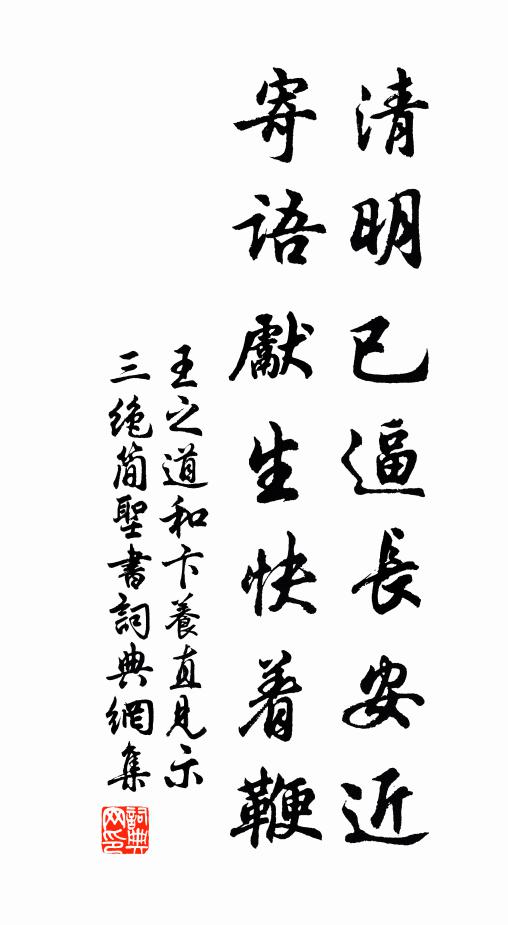 清明已逼長安近
寄語獻生快着鞭
王之道和卞養直見示
三絶簡聖書詞典網集
詞典網印